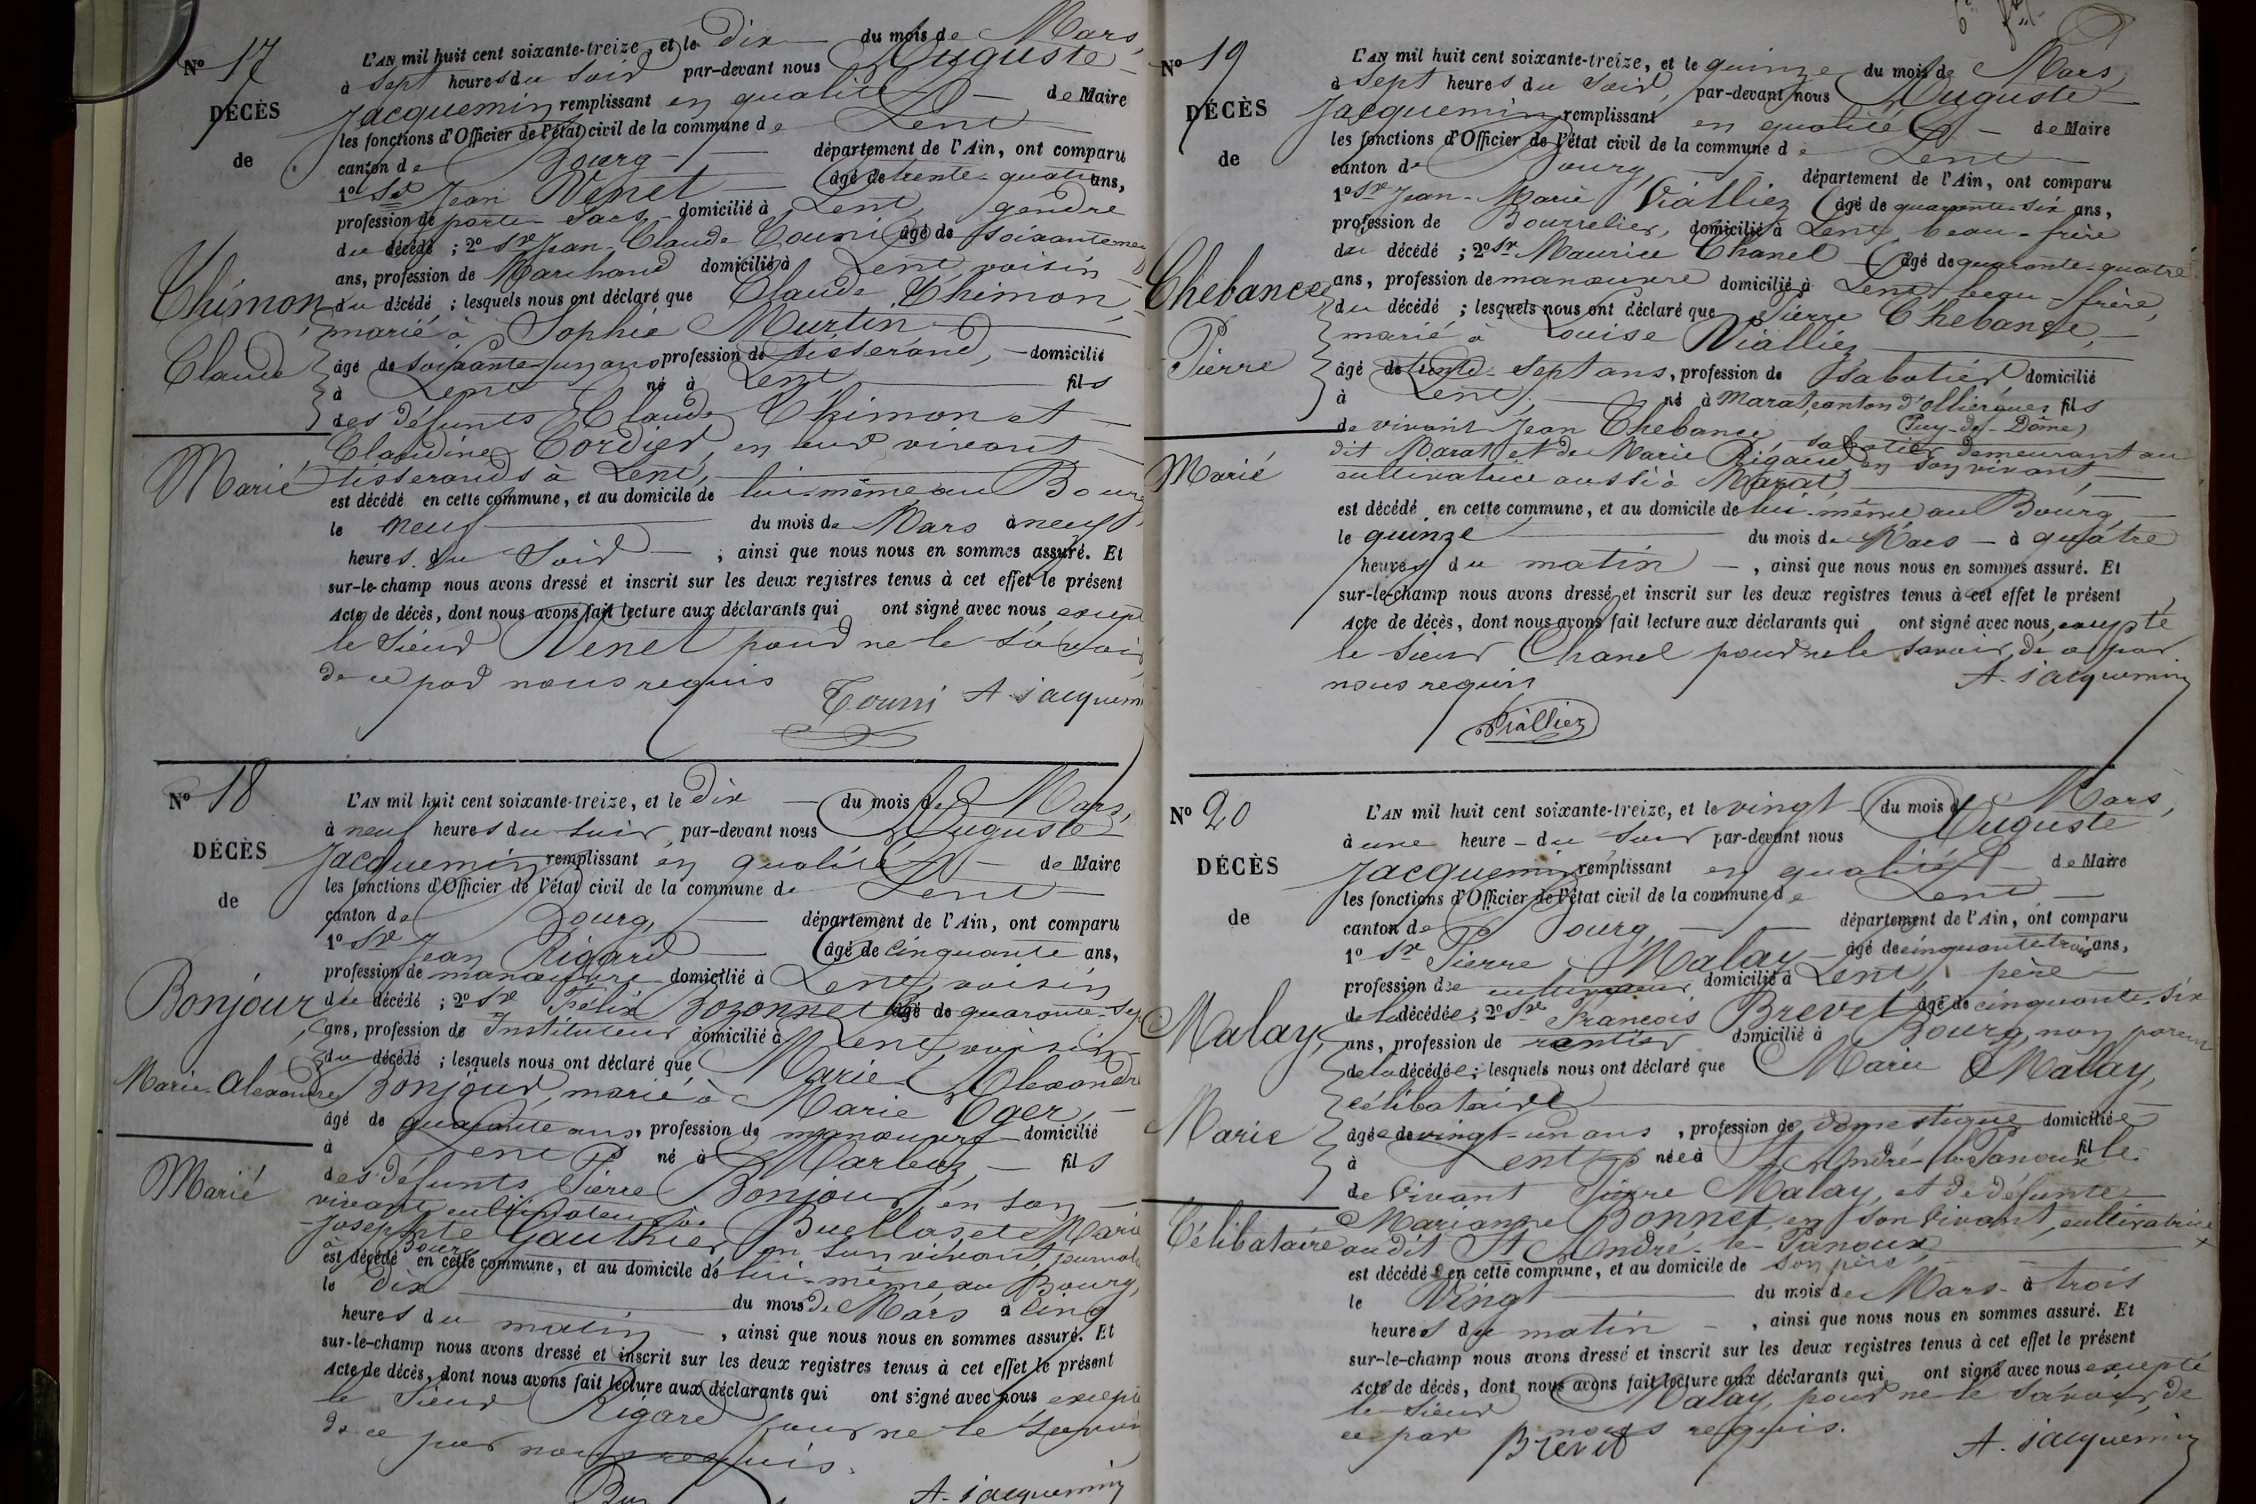 Nº 17
DÉCÈS
de
Chimon,
Claude
Marié
L'AN mil huit cent soixante-treize, et le dix du mois de Mars,
à sept heures du soir par-devant nous Auguste
Jacquemin remplissant en qualité de Maire
les fonctions d'Officier de l'état civil de la commune de Lent
canton de Bourg département de l'Ain, ont comparu
1º Sr Jean Venet âgé de trente-quatre ans,
profession de porte-sacs domicilié à Lent, gendre
du décédé ; 2º Sr Jean-Claude Tourni âgé de soixante
ans, profession de Marchand domicilié à Lent voisin
du décédé ; lesquels nous ont déclaré que Claude Chimon,
marié à Sophie Murtin
âgé de soixante un ans profession de tisserand, domicilié
à Lent né à Lent fils
des défunts Claude Chimon et
Claudine Cordier, en leur vivant
tisserands à Lent,
est décédé en cette commune, et au domicile de lui-même au Bourg
le neuf du mois de Mars à neuf
heures du soir ; ainsi que nous nous en sommes assuré. Et
sur-le-champ nous avons dressé et inscrit sur les deux registres tenus à cet effet le présent
Acte de décès, dont nous avons fait lecture aux déclarants qui ont signé avec nous, excepté
le sieur Venet pour ne le savoir
de ce par nous requis
Tourni A. Jacquemin
Nº 18
DÉCÈS
de
Bonjour,
Marie-Alexandre
Marié
L'AN mil huit cent soixante-treize, et le dix du mois de Mars,
à neuf heures du soir, par-devant nous Auguste
Jacquemin remplissant en qualité de Maire
les fonctions d'Officier de l'état civil de la commune de Lent
canton de Bourg, département de l'Ain, ont comparu
1º Sr Jean Rigard âgé de cinquante ans,
profession de manœuvre domicilié à Lent, voisin
du décédé ; 2º Sr Félix Bozonnet âgé de quarante-sept
ans, profession de Instituteur domicilié à Lent, voisin
du décédé ; lesquels nous ont déclaré que Marie Alexandre
Bonjour, marié à Marie Oger,
âgé de quarante ans, profession de manœuvre domicilié
à Lent né à Marboz, fils
des défunts Pierre Bonjour, en son
vivant cultivateur à Buellas et de Marie
Josephte Gauthier, en son vivant, journalière
à Bourg
est décédé en cette commune, et au domicile de lui-même au Bourg,
le dix du mois de Mars à cinq
heures du matin, ainsi que nous nous en sommes assuré. Et
sur-le-champ nous avons dressé et inscrit sur les deux registres tenus à cet effet le présent
Acte de décès, dont nous avons fait lecture aux déclarants qui ont signé avec nous excepté
le sieur Rigard pour ne le savoir
de ce par nous requis.
A. Jacquemin
Nº 19
DÉCÈS
de
Chebance,
Pierre
Marié
L'AN mil huit cent soixante-treize, et le quinze du mois de Mars
à sept heures du soir, par-devant nous Auguste
Jacquemin remplissant en qualité de Maire
les fonctions d'Officier de l'état civil de la commune de Lent
canton de Bourg, département de l'Ain, ont comparu
1º Sr Jean-Marie Vialliez âgé de quarante-six ans,
profession de Bourrelier, domicilié à Lent, beau-frère
du décédé ; 2º Sr Maurice Chanel âgé de quarante-quatre
ans, profession de manœuvre domicilié à Lent, beau-frère,
du décédé ; lesquels nous ont déclaré que Pierre Chebance,
marié à Louise Vialliez
âgé de trente-sept ans, profession de sabotier domicilié
à Lent, né à Marat canton d'Olliergues fils
(Puy-de-Dôme)
de vivant Jean Chebance, sabotier demeurant au
dit Marat et de Marie Rigaud en son vivant,
cultivatrice aussi à Marat,
est décédé en cette commune, et au domicile de lui-même au Bourg
le quinze du mois de Mars à quatre
heures du matin, ainsi que nous nous en sommes assuré. Et
sur-le-champ nous avons dressé et inscrit sur les deux registres tenus à cet effet le présent
Acte de décès, dont nous avons fait lecture aux déclarants qui ont signé avec nous, excepté
le sieur Chanel pour ne le savoir, de ce par
nous requis
A. Jacquemin
Vialliez
Nº 20
DÉCÈS
de
Malay,
Marie
Célibataire
L'AN mil huit cent soixante-treize, et le vingt du mois de Mars,
à une heure du soir par-devant nous Auguste
Jacquemin remplissant en qualité de Maire
les fonctions d'Officier de l'état civil de la commune de Lent
canton de Bourg, département de l'Ain, ont comparu
1º Sr Pierre Malay âgé de cinquante trois ans,
profession de cultivateur domicilié à Lent, père
de la décédée ; 2º Sr François Brevet âgé de cinquante-six
ans, profession de rentier domicilié à Bourg, non parent
de la décédée ; lesquels nous ont déclaré que Marie Malay,
célibataire
âgée de vingt-un ans, profession de domestique domiciliée
à Lent née à St André-le-Panoux fille
de vivant Pierre Malay, et de défunte
Marianne Bonnet, en son vivant, cultivatrice
audit St André-le-Panoux
est décédée en cette commune, et au domicile de son père,
le vingt du mois de Mars à trois
heures du matin, ainsi que nous nous en sommes assuré. Et
sur-le-champ nous avons dressé et inscrit sur les deux registres tenus à cet effet le présent
Acte de décès, dont nous avons fait lecture aux déclarants qui ont signé avec nous excepté
le sieur Malay, pour ne le savoir, de
ce par nous requis.
Brevet A. Jacquemin